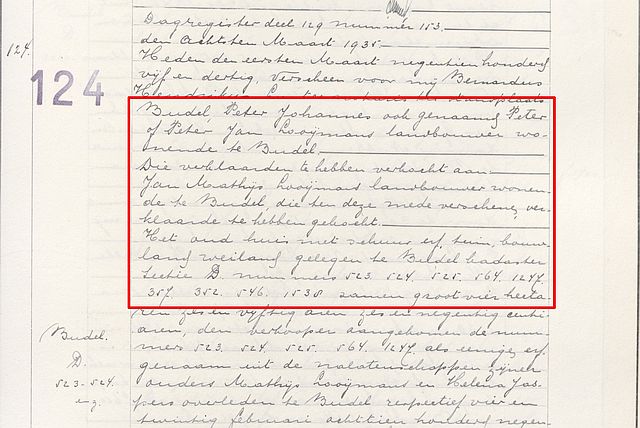 Dagregister deel 129 nummer 153.
den Achtsten Maart 1935.
124.
Heden den eersten Maart negentien honderd
124
vijf en dertig, verscheen voor mij Bernardus
Budel, Peter Johannes ook genaamd Peter
of Peter Jan Looijmans landbouwer wo-
nende te Budel.
Die verklaarden te hebben verkocht aan:
Jan Mathijs Looijmans landbouwer wonen-
de te Budel, die ten deze mede verscheen, ver-
klaarde te hebben gekocht.
Het oud huis met schuur erf, tuin, bouw-
land weiland gelegen te Budel kadaster
Sectie D. nummers 523. 524. 525. 564. 1247.
357. 352. 546. 1538 samen groot vier hecta-
ren zes en vijftig aren zes en negentig centi-
aren, den verkooper aangekomen de num-
mers 523. 524. 525. 564. 1247. als eenige erf
genaam uit de nalatenschappen zijner
ouders Mathijs Looijmans en Helena Jas-
pers overleden te Budel respectief vier en
twintig februari achttien honderd negen-
Budel.
D.
523-524.
enz.